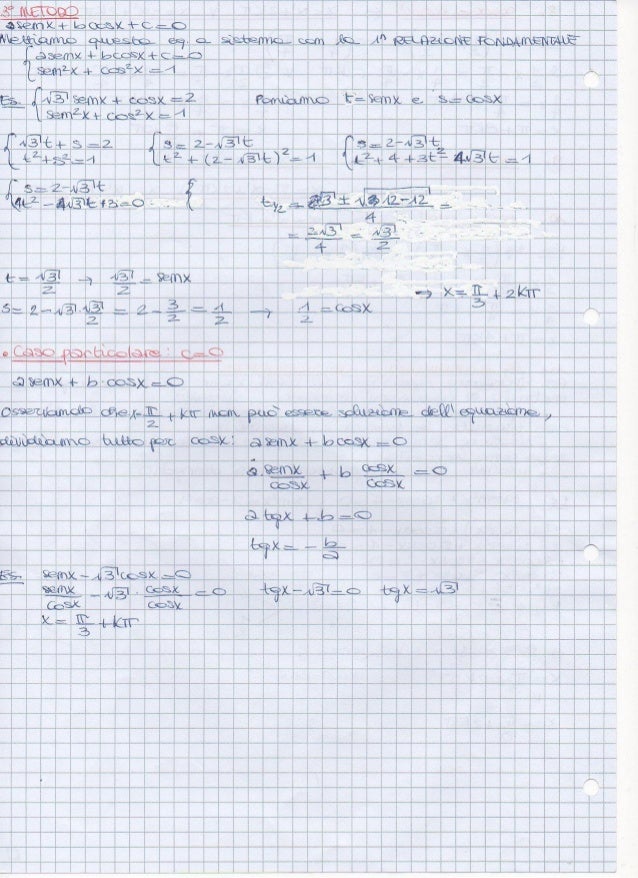 3° METODO
asenx + bcosx + c = 0
Mettiamo questa eq. a sistema con la 1ª RELAZIONE FONDAMENTALE
{ asenx + bcosx + c = 0
{ sen²x + cos²x = 1
Es. { √3 senx + cosx = 2 Poniamo t = senx e s = cosx
{ sen²x + cos²x = 1
{ √3 t + s = 2 { s = 2 - √3 t { s = 2 - √3 t
{ t² + s² = 1 { t² + (2 - √3 t)² = 1 { t² + 4 + 3t² - 4√3 t = 1
{ s = 2 - √3 t {
{ 4t² - 4√3 t + 3 = 0 t½ = 2√3 ± √12 - 12 / 4 =
= 2√3 / 4 = √3 / 2
t = √3/2 → √3/2 = senx
→ x = π/3 + 2kπ
s = 2 - √3 · √3/2 = 2 - 3/2 = 1/2 → 1/2 = cosx
• Caso particolare: c = 0
a senx + b · cosx = 0
Osserviamo che x = π/2 + kπ non può essere soluzione dell'equazione,
dividiamo tutto per cosx: a senx + b cosx = 0
a · senx/cosx + b cosx/cosx = 0
a tgx + b = 0
tgx = - b/a
Es. senx - √3 cosx = 0
senx/cosx - √3 · cosx/cosx = 0 tgx - √3 = 0 tgx = √3
x = π/3 + kπ